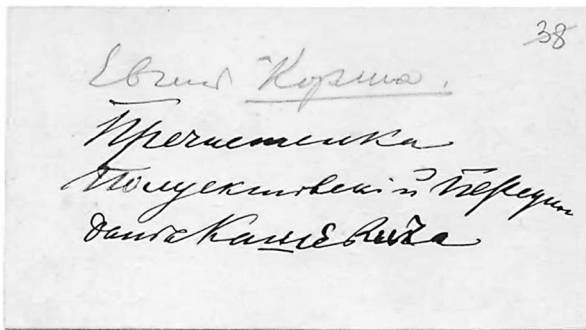 38
Евгений Корша.
Пречистенка
Полуектовскій Переул
домъ Кашевича